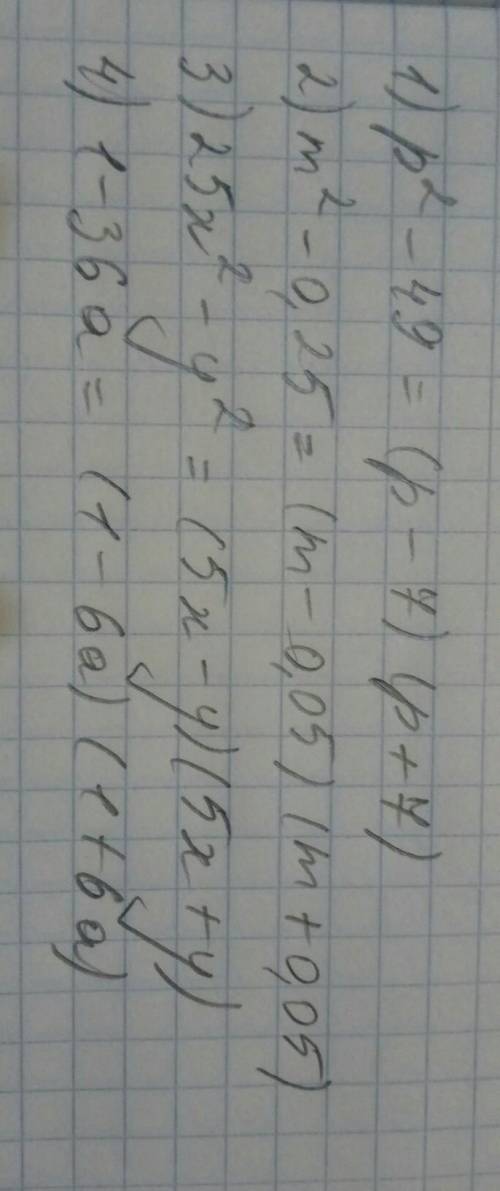 1) p² - 49 = (p - 7) (p + 7)
2) m² - 0,25 = (m - 0,05) (m + 0,05)
3) 25x² - y² = (5x - y) (5x + y)
4) 1 - 36a = (1 - 6a) (1 + 6a)